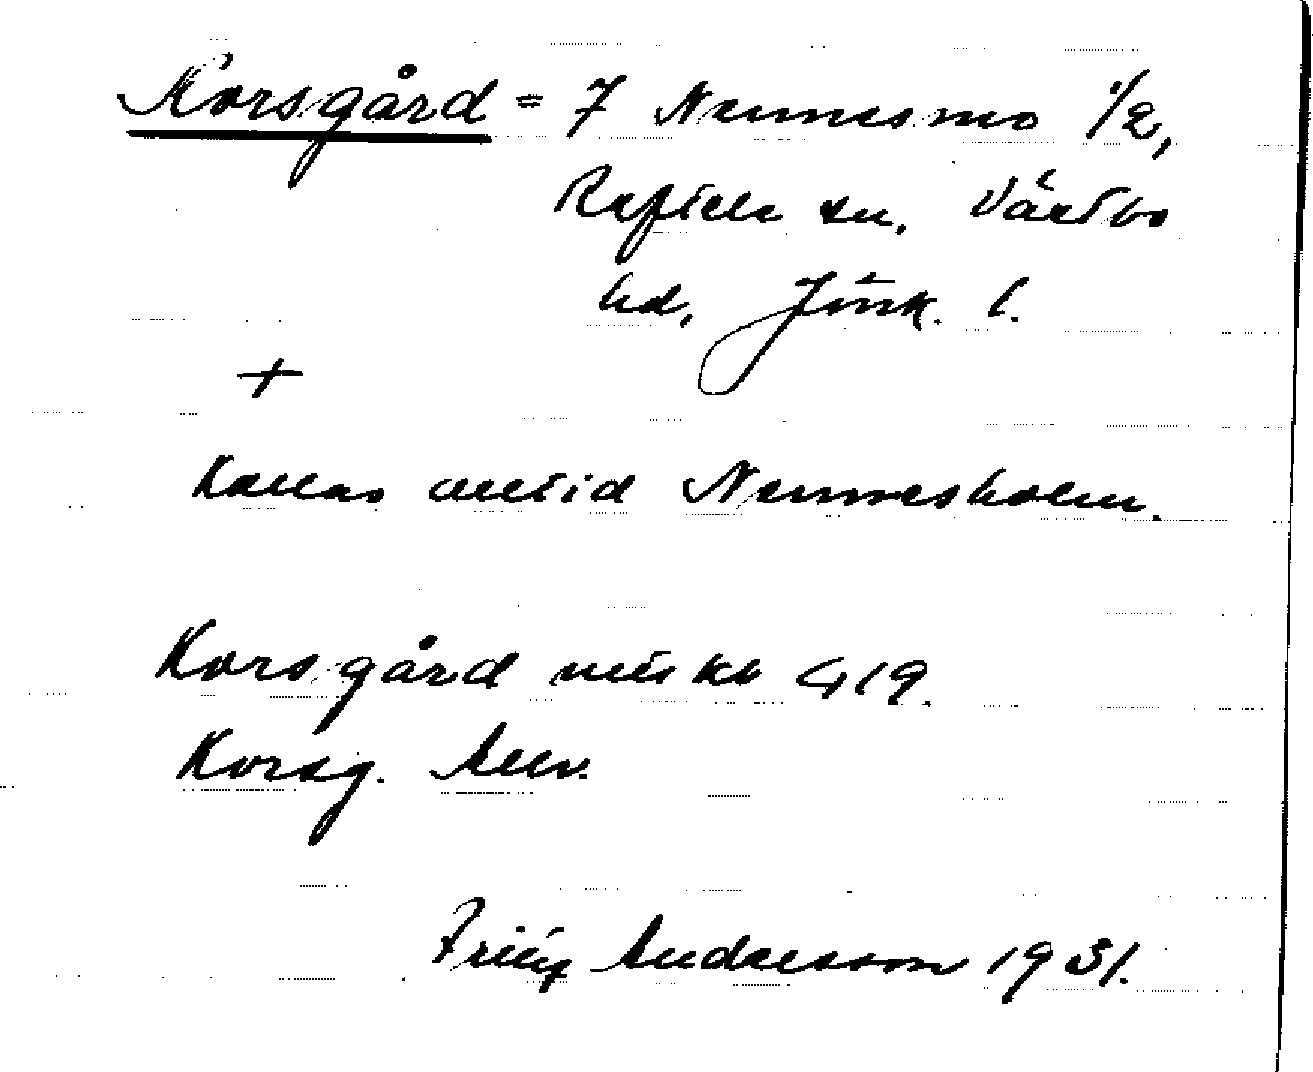 Korsgård = 7 Nennesmo 1/2,
Reftele sn, Västbo
hd, Jönk. l.
+
Kallas alltid Nennesholm.
Korsgård
Korsg.
Fritz Andersson 1931.